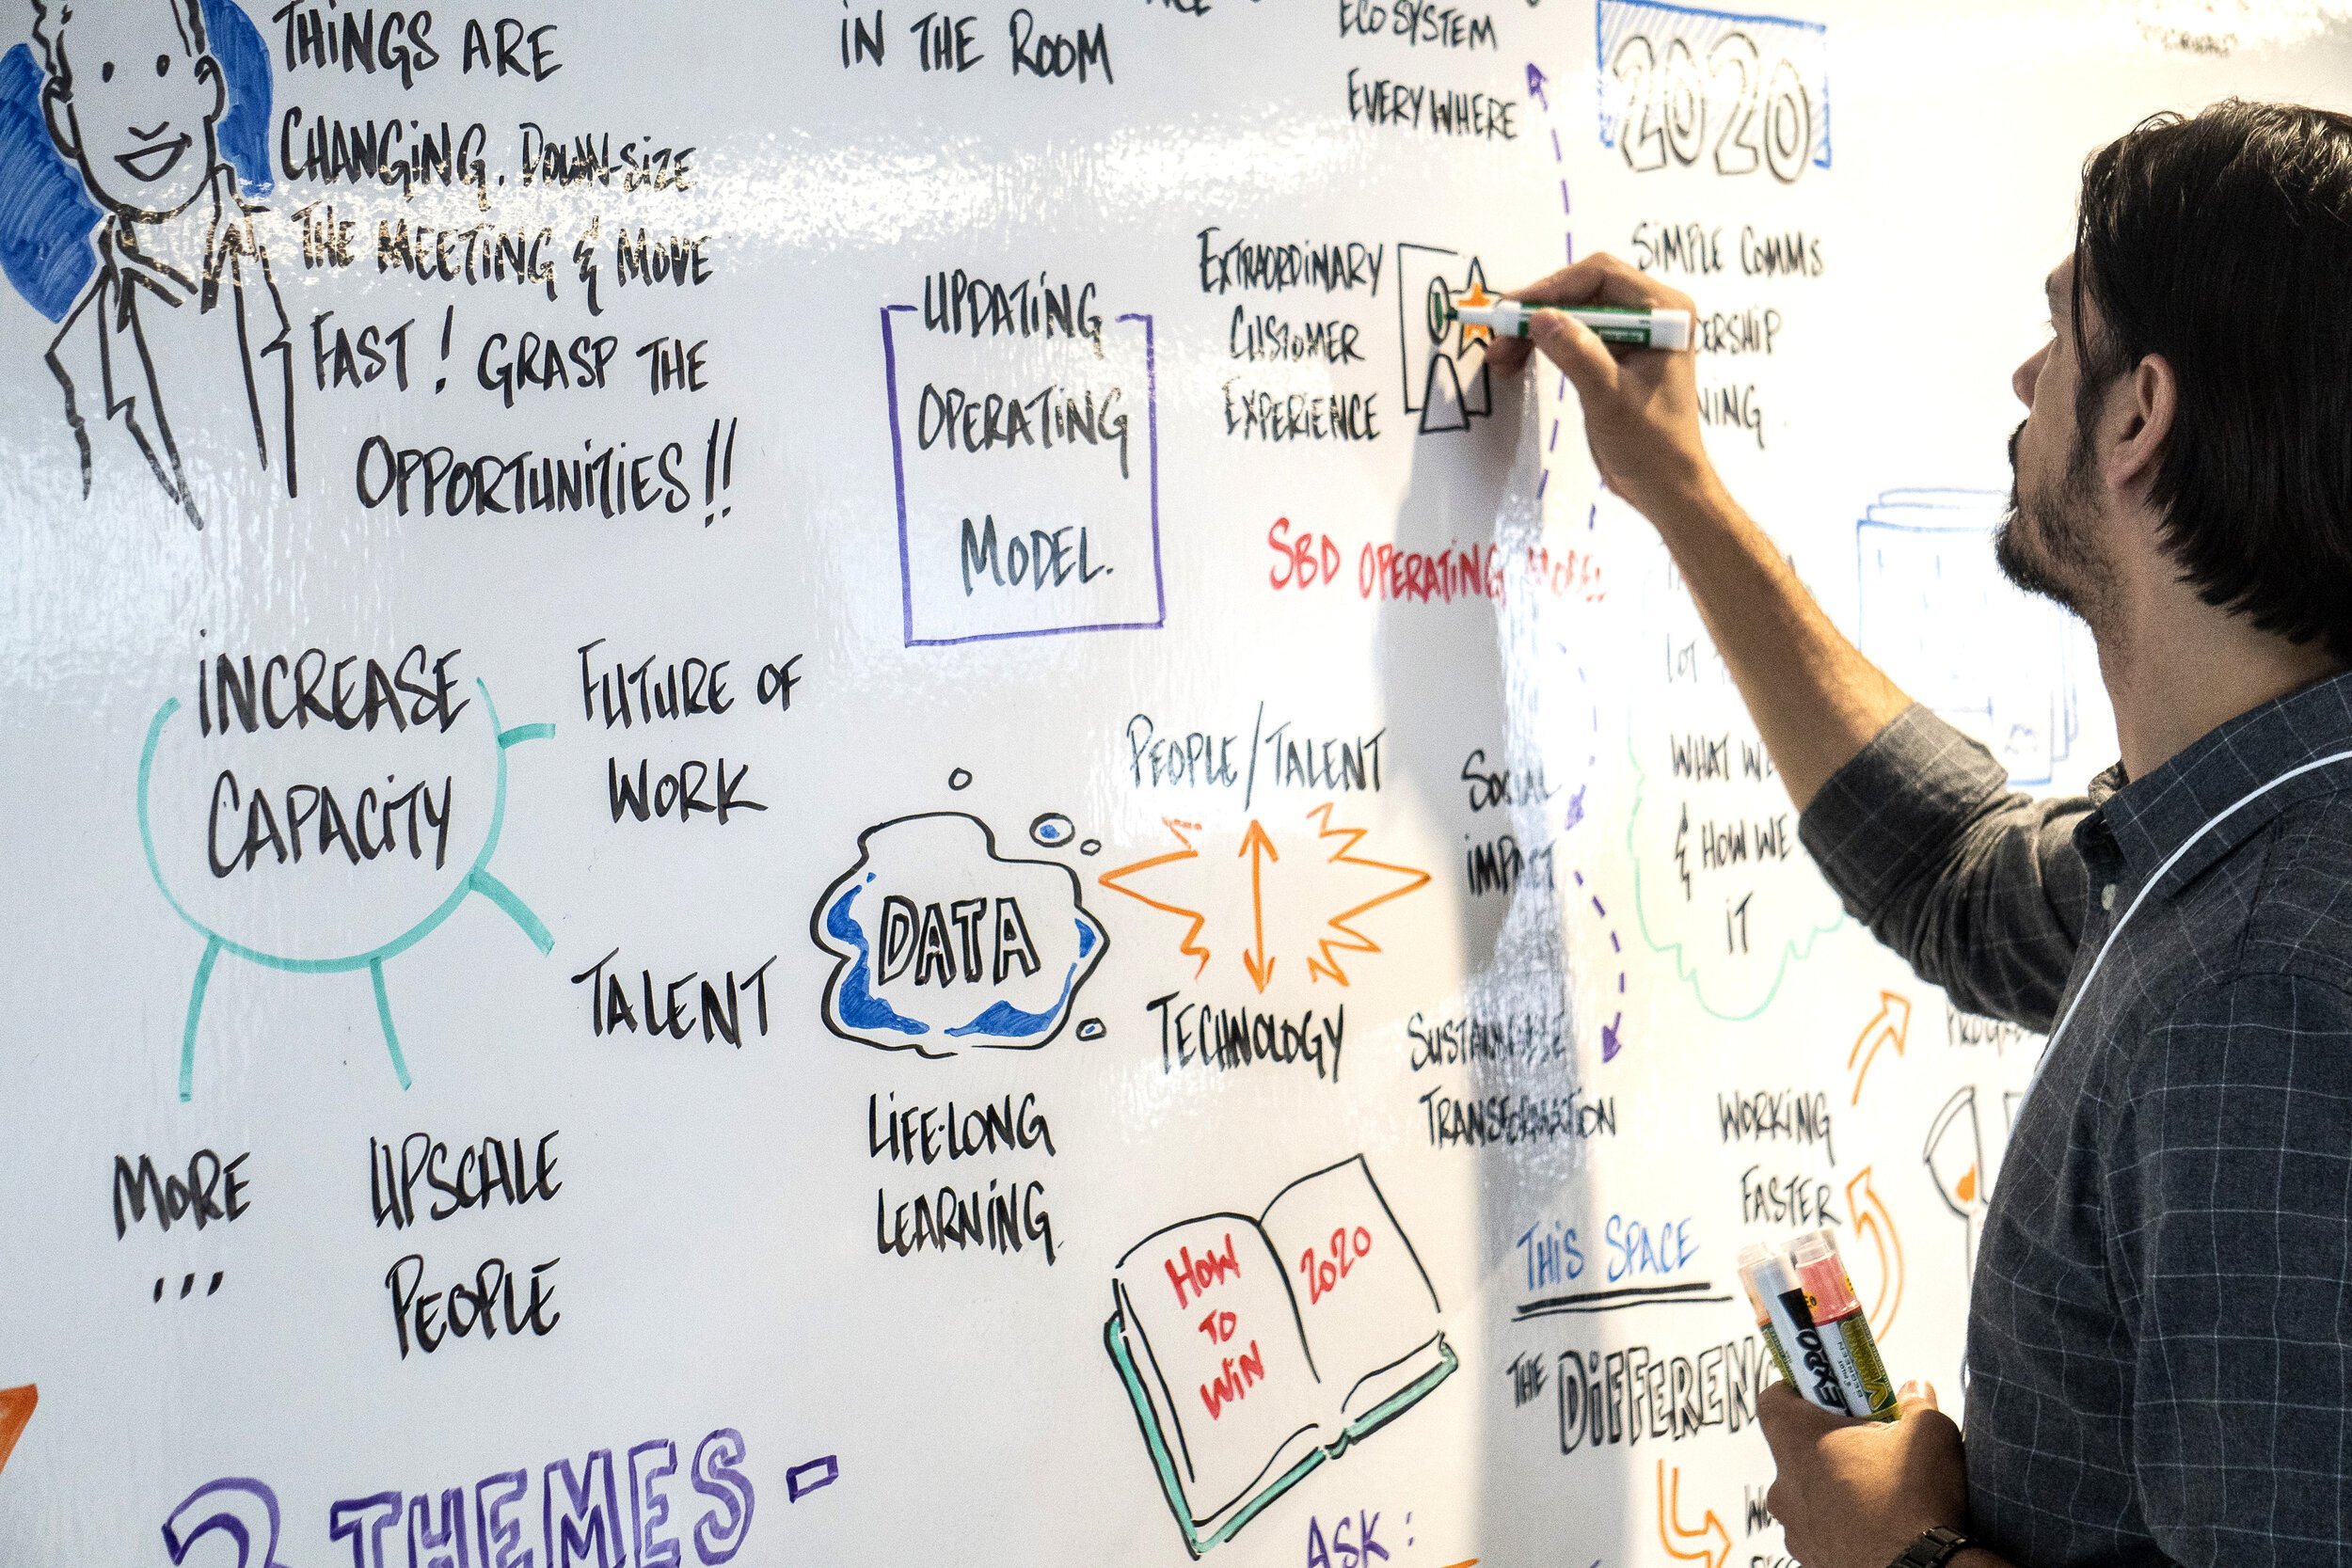 THINGS ARE
CHANGING. DOWN-SIZE
THE MEETING & MOVE
FAST! GRASP THE
OPPORTUNITIES!!
IN THE ROOM
ECOSYSTEM
EVERYWHERE
2020
SIMPLE COMMS
UPDATING
OPERATING
MODEL.
EXTRAORDINARY
CUSTOMER
EXPERIENCE
SBD OPERATING MODEL
INCREASE
CAPACITY
FUTURE OF
WORK
TALENT
MORE
...
UPSCALE
PEOPLE
DATA
LIFE-LONG
LEARNING
PEOPLE/TALENT
TECHNOLOGY
SOCIAL
IMPACT
SUSTAINABLE
TRANSFORMATION
WHAT
& HOW WE
IT
WORKING
FASTER
THIS SPACE
THE
HOW
TO
WIN
2020
THEMES -
ASK:
EXPO